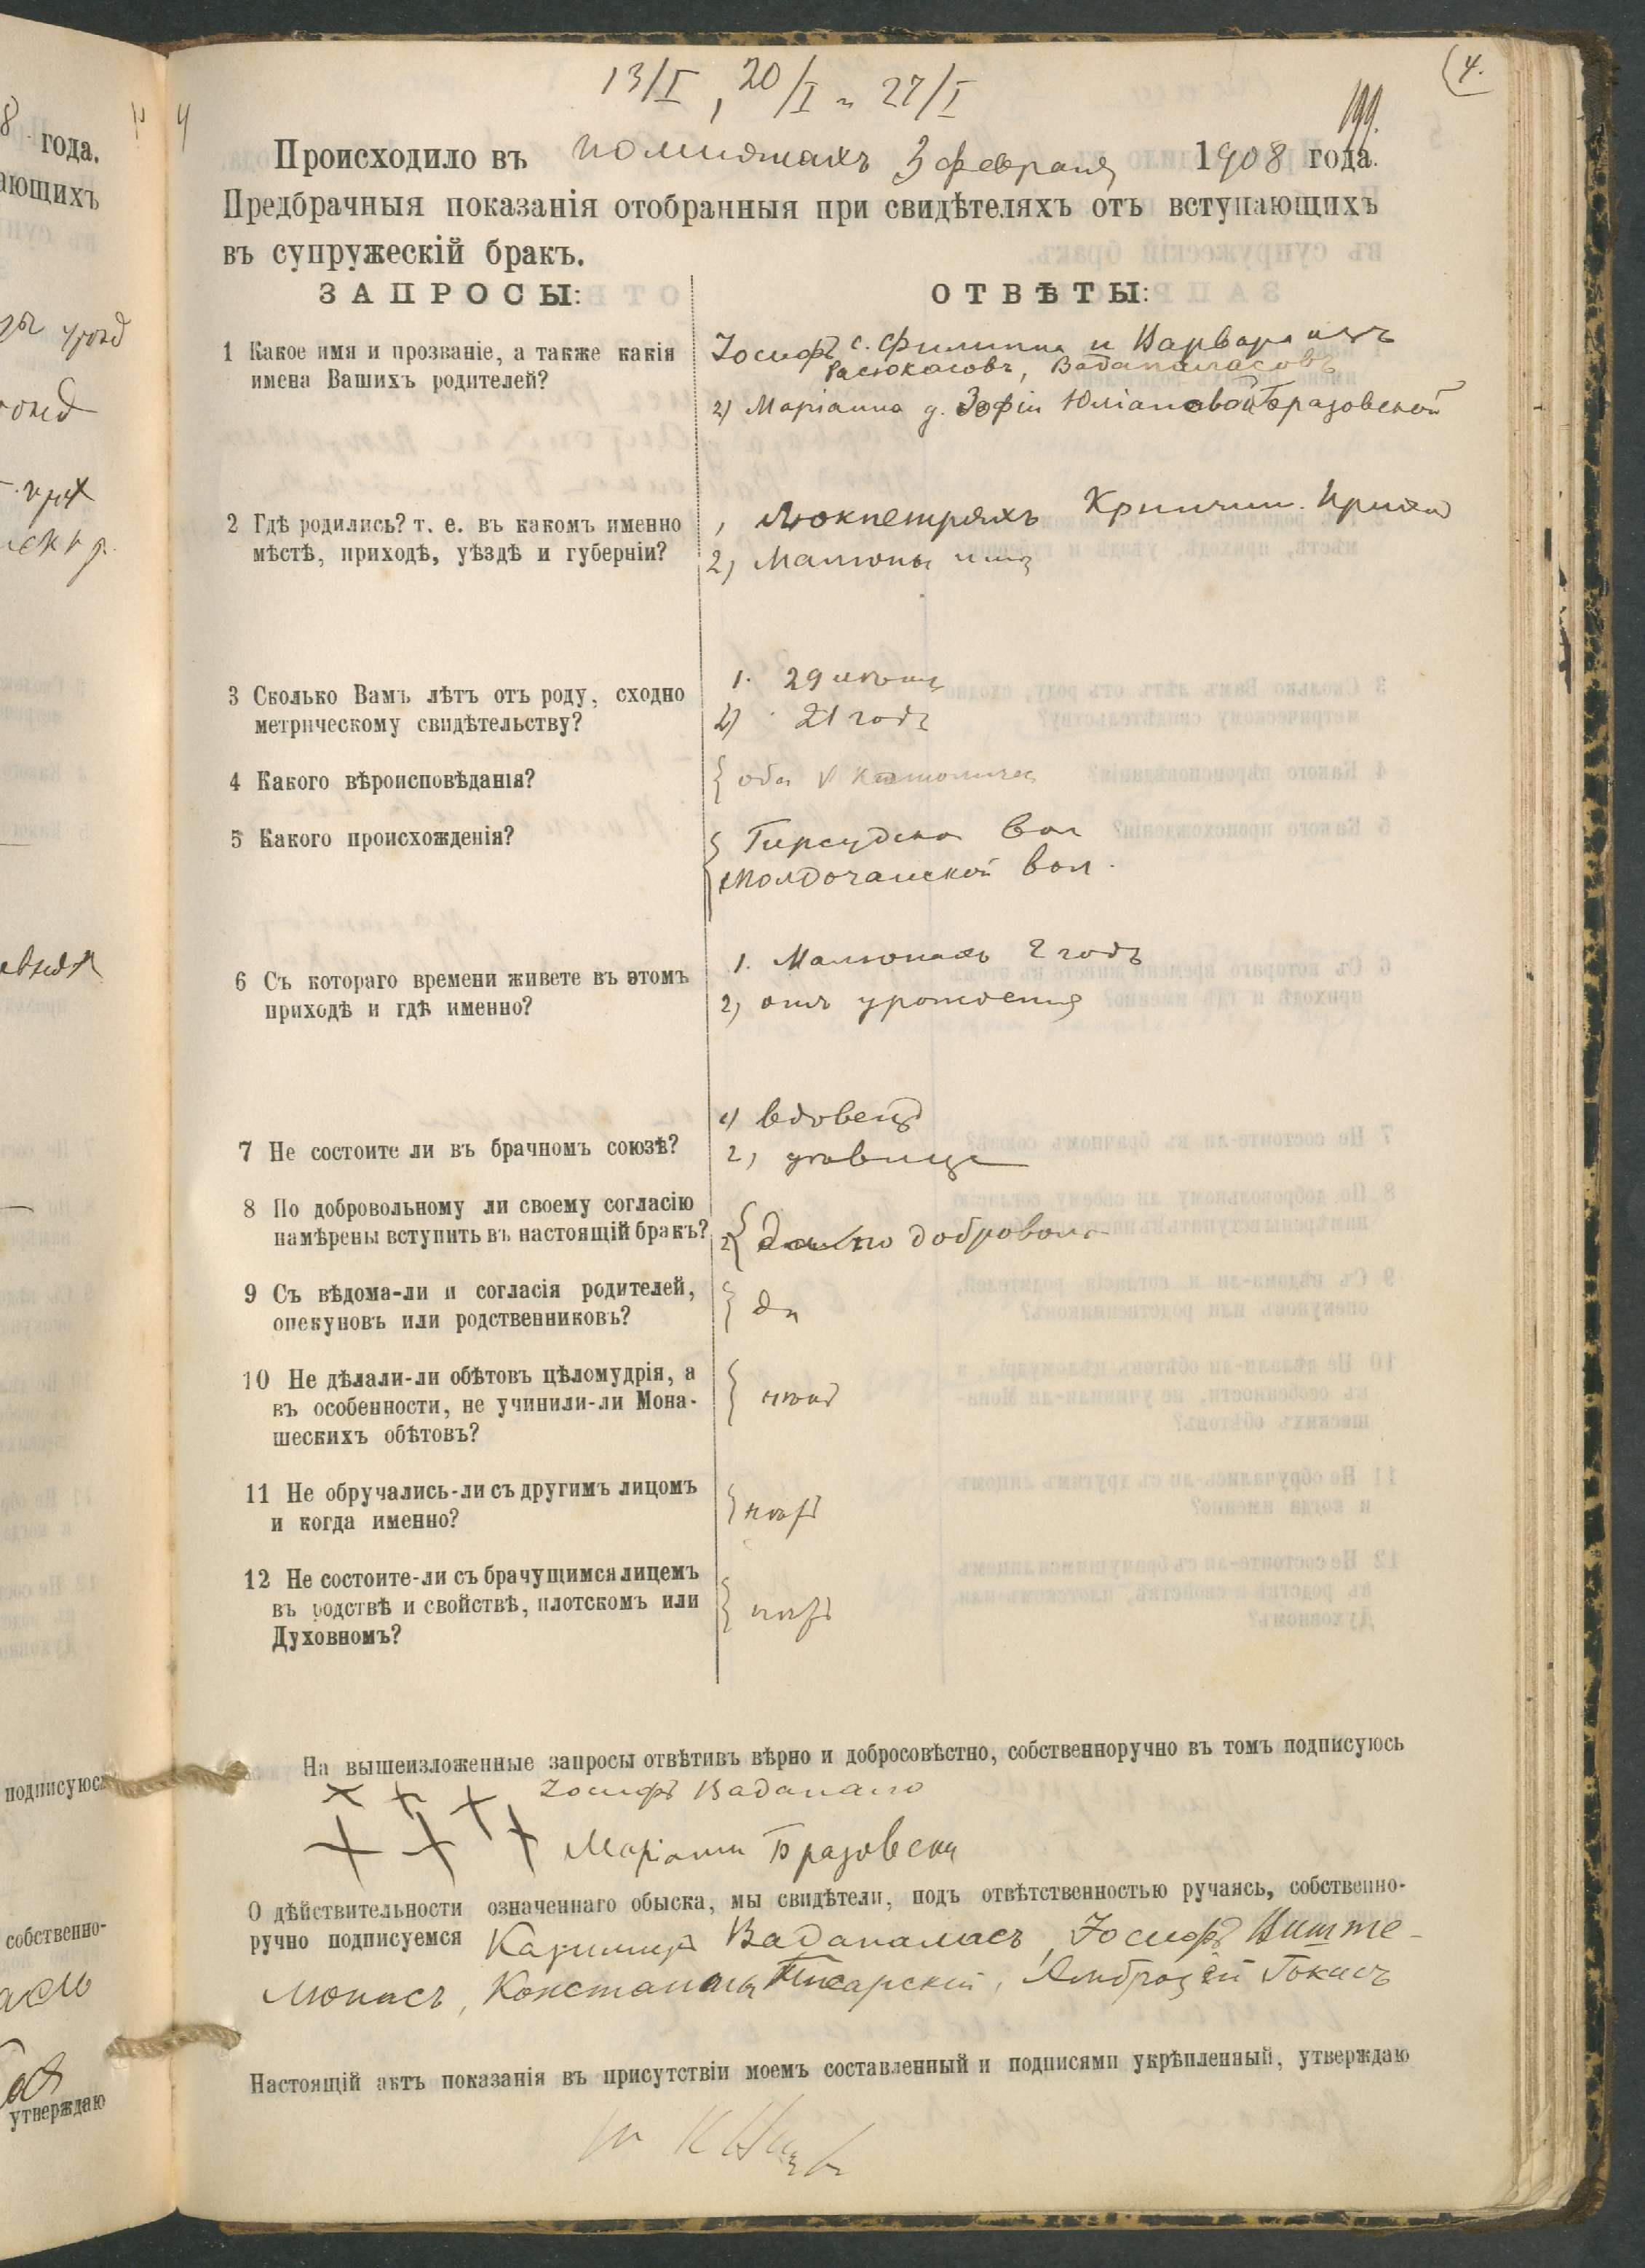 (4.
13/I, 20/I и 27/I
199.
Происходило въ 3 февраля 1908 года.
Предбрачныя показанія отобранныя при свидѣтеляхъ отъ вступающихъ
въ супружескій бракъ.
ЗАПРОСЫ: ОТВѢТЫ:
1 Какое имя и прозваніе, а также какія
имена Вашихъ родителей?
Іосифъ с. Филиппа и Варвара изъ
Вадапаласовъ
2) Маріанна д. Зофіи Юліановой Бразовской
2 Гдѣ родились? т. е. въ какомъ именно
мѣстѣ, приходѣ, уѣздѣ и губерніи?
1, Люкпетряхъ Криничин. Прихо
2) Малюны
3 Сколько Вамъ лѣтъ отъ роду, сходно
метрическому свидѣтельству?
1. 29
2) 21 годъ
4 Какого вѣроисповѣданія?
оба
5 Какого происхожденія?
Гирсудска вол
Іолдочанской вол.
6 Съ котораго времени живете въ этомъ
приходѣ и гдѣ именно?
1. Малюнахъ 2 годъ
2) отъ урожденія
7 Не состоите ли въ брачномъ союзѣ?
1) вдовецъ
2)
8 По добровольному ли своему согласію
намѣрены вступить въ настоящій бракъ?
по доброволь
9 Съ вѣдома-ли и согласія родителей,
опекуновъ или родственниковъ?
да
10 Не дѣлали-ли обѣтовъ цѣломудрія, а
въ особенности, не учинили-ли Мона-
шескихъ обѣтовъ?
нѣтъ
11 Не обручались-ли съ другимъ лицомъ
и когда именно?
нѣтъ
12 Не состоите-ли съ брачущимся лицемъ
въ родствѣ и свойствѣ, плотскомъ или
Духовномъ?
нѣтъ
На вышеизложенные запросы отвѣтивъ вѣрно и добросовѣстно, собственноручно въ томъ подписуюсь
+ + + Іосифъ Вадапало
+ + + Маріанна Бразовска
О дѣйствительности означеннаго обыска, мы свидѣтели, подъ отвѣтственностью ручаясь, собственно-
ручно подписуемся Казимиръ Вадапаласъ, Іосифъ Виште-
люнасъ, Константинъ Писарскій, Амброзій Токисъ
Настоящій актъ показанія въ присутствіи моемъ составленный и подписями укрѣпленный, утверждаю
8 года.
ающихъ
подписуюсь
собственно-
утверждаю